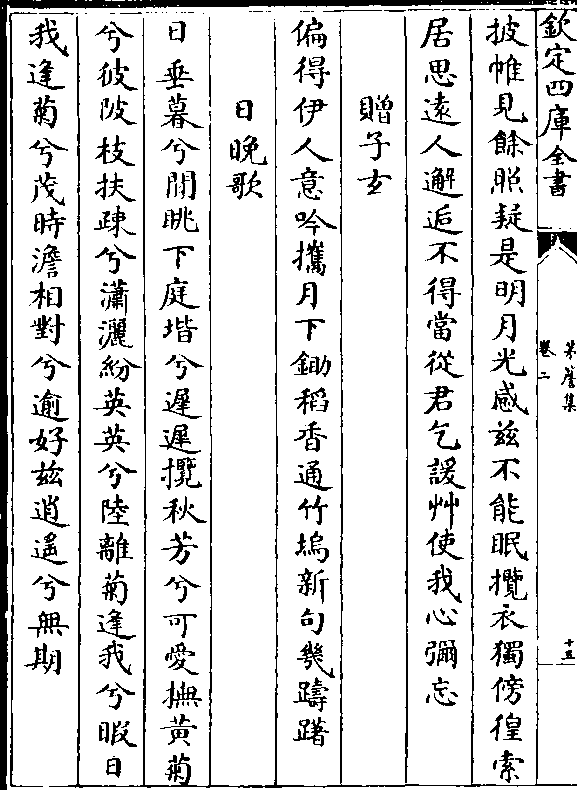 欽定四庫全書
卷二
十五
披帷見餘照疑是明月光感兹不能眠攬衣獨傍徨索
居思遠人邂逅不得當從君乞諼艸使我心彌忘
贈子玄
偏得伊人意吟攜月下鋤稻香通竹塢新句幾躊躇
日晚歌
日垂暮兮閒眺下庭堦兮遲遲攬秋芳兮可愛撫黃菊
兮彼陂枝扶疎兮瀟灑紛英英兮陸離菊逢我兮暇日
我逢菊兮茂時澹相對兮逾好兹逍遙兮無期